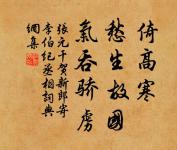 倚高寒
愁生故國
氣吞驕虜
張元干賀新郎寄
李伯紀丞相詞典
綱集